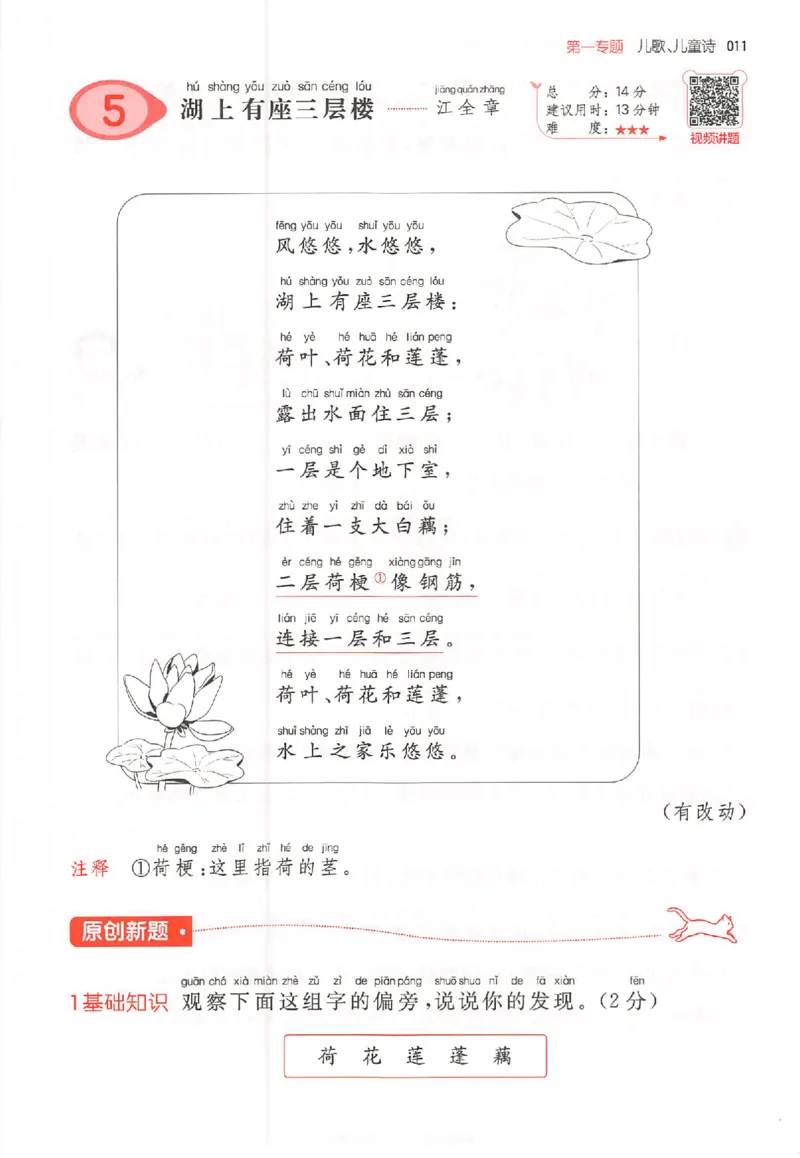 第一专题 儿歌、儿童诗 011
hú shàng yǒu zuò sān céng lóu jiāng quán zhāng
5 湖上有座三层楼 ………… 江全章
总 分：14分
建议用时：13分钟
难 度：★★★
视频讲题
fēng yōu yōu shuǐ yōu yōu
风悠悠，水悠悠，
hú shàng yǒu zuò sān céng lóu
湖上有座三层楼：
hé yè hé huā hé lián peng
荷叶、荷花和莲蓬，
lù chū shuǐ miàn zhù sān céng
露出水面住三层；
yī céng shì gè dì xià shì
一层是个地下室，
zhù zhe yì zhī dà bái ǒu
住着一支大白藕；
èr céng hé gěng xiàng gāng jīn
二层荷梗①像钢筋，
lián jiē yī céng hé sān céng
连接一层和三层。
hé yè hé huā hé lián peng
荷叶、荷花和莲蓬，
shuǐ shàng zhī jiā lè yōu yōu
水上之家乐悠悠。
（有改动）
hé gěng zhè lǐ zhǐ hé de jīng
注释 ①荷梗：这里指荷的茎。
原创新题
guān chá xià miàn zhè zǔ zì de piān páng shuō shuo nǐ de fā xiàn fēn
1基础知识 观察下面这组字的偏旁，说说你的发现。（2分）
荷 花 莲 蓬 藕